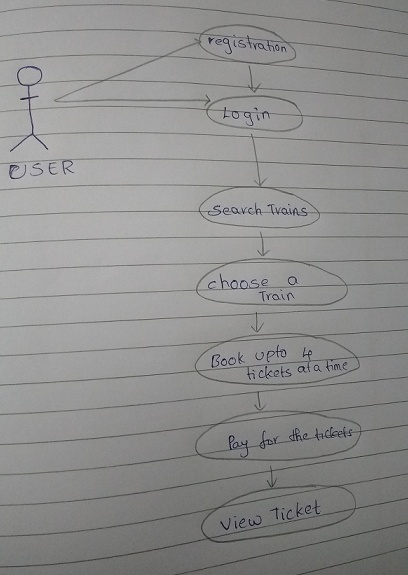 registration
Login
USER
Search Trains
choose a
Train
Book upto 4
tickets at a time
Pay for the tickets
View Ticket